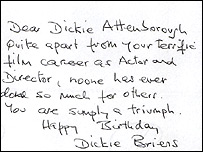 Dear Dickie Attenborough
Quite apart from your terrific
film career as Actor and
Director, noone has ever
done so much for others.
You are simply a triumph.
Happy Birthday
Dickie Briers